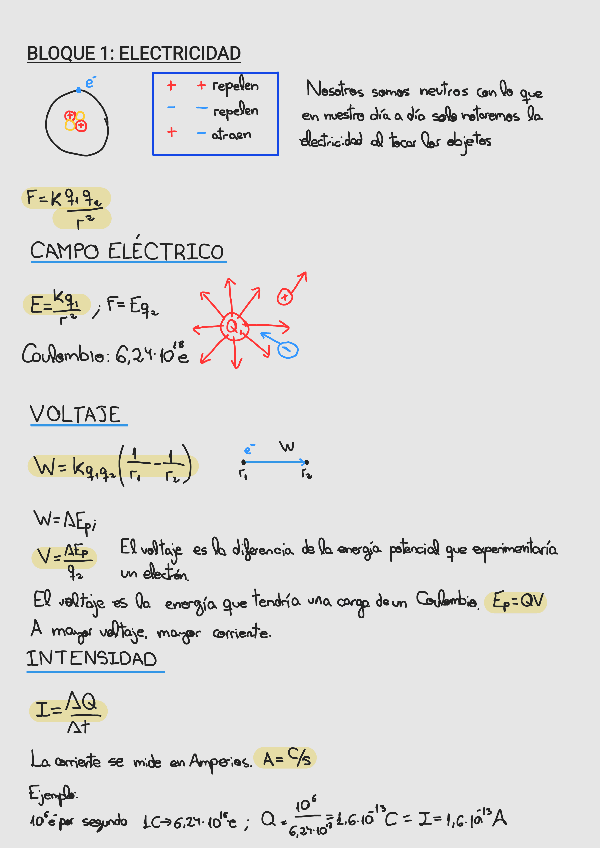 BLOQUE 1: ELECTRICIDAD
e⁻
+ + repelen
− − repelen
+ − atraen
Nosotros somos neutros con lo que
en nuestro día a día solo notaremos la
electricidad al tocar los objetos
F = K q₁ q₂ / r²
CAMPO ELÉCTRICO
E = K q₁ / r² ; F = E q₂
Q₁
+
−
Coulombio: 6,24·10¹⁸ e
VOLTAJE
W = K q₁ q₂ (1/r₁ − 1/r₂)
e⁻ W
r₁ r₂
W = ΔEpi
V = ΔEp / q₂
El voltaje es la diferencia de la energía potencial que experimentaría
un electrón.
El voltaje es la energía que tendría una carga de un Coulombio. Ep = QV
A mayor voltaje, mayor corriente.
INTENSIDAD
I = ΔQ / Δt
La corriente se mide en Amperios. A = C/s
Ejemplo:
10⁶ e⁻ por segundo 1C → 6,24·10¹⁸ e ; Q = 10⁶ / 6,24·10¹⁸ = 1,6·10⁻¹³ C = I = 1,6·10⁻¹³ A